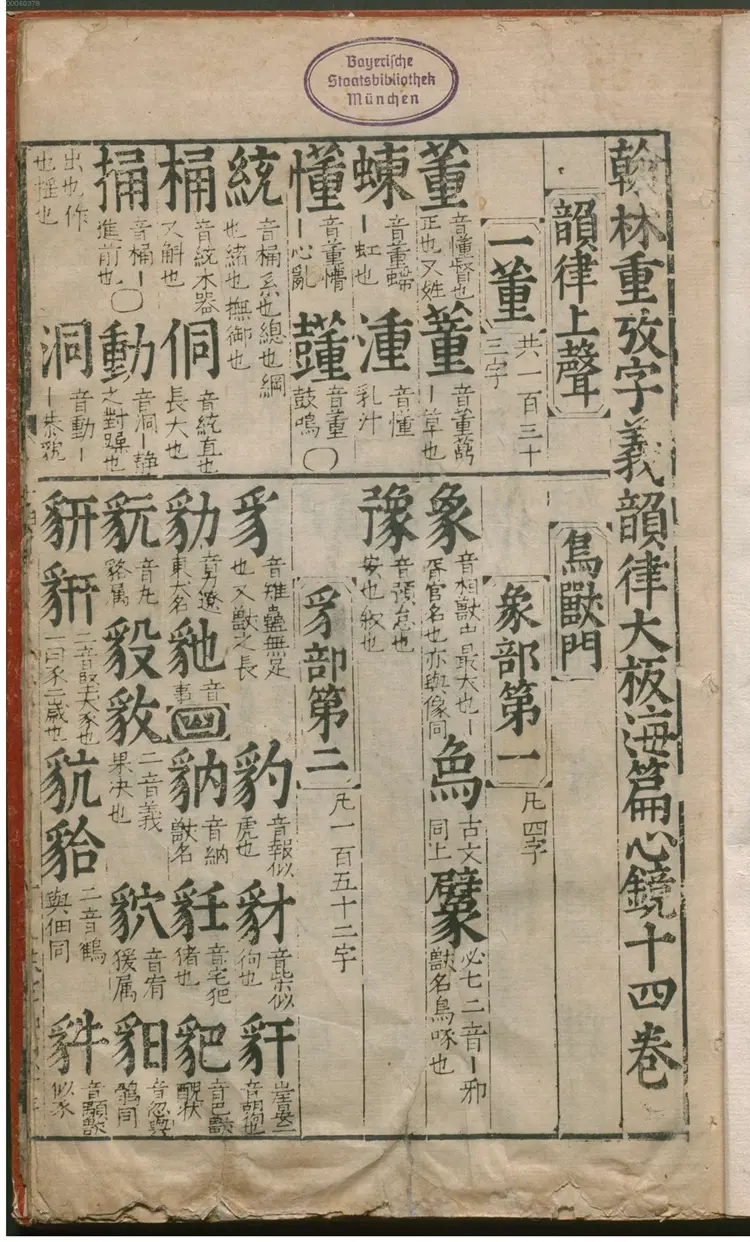 00060378
Bayerische
Staatsbibliothek
München
翰林重攷字義韻律大板海篇心鏡十四卷
韻律上聲
一董
共一百三十
三字
董
音懂督也
正也又姓
蕫
音董蕅
丨草也
蝀
音董螮
丨虹也
湩
音懂
乳汁
懂
音董懵
丨心亂
音董
鼓鳴〇
統
音桶系也總也綱
也緒也撫御也
桶
音統木器
又斛也
侗
音統直也
長大也
捅
音桶丨
進前也〇
動
音洞丨静
之對躁也
出也作
也搖也
洞
音動丨
鳥獸門
象部第一
凡四字
象
音相獸中最大也丨
胥官名也亦與像同
古文
同上
必七二音丨邪
獸名鳥啄也
豫
音預怠也
安也敘也
豸部第二
凡一百五十二字
豸
音雉蟲無足
也又獸之長
豹
音報似
虎也
豺
音柴似
狗也
豻
東夷名
音
事
四
豽
音納
獸名
音宅犯
猪也
音巴獸
貦
音丸
貉属
二音義
果决也
貁
音宥
猨属
音忽與
鶻同
豜
一曰豕二歲也
二音鶴
與佃同
似豕